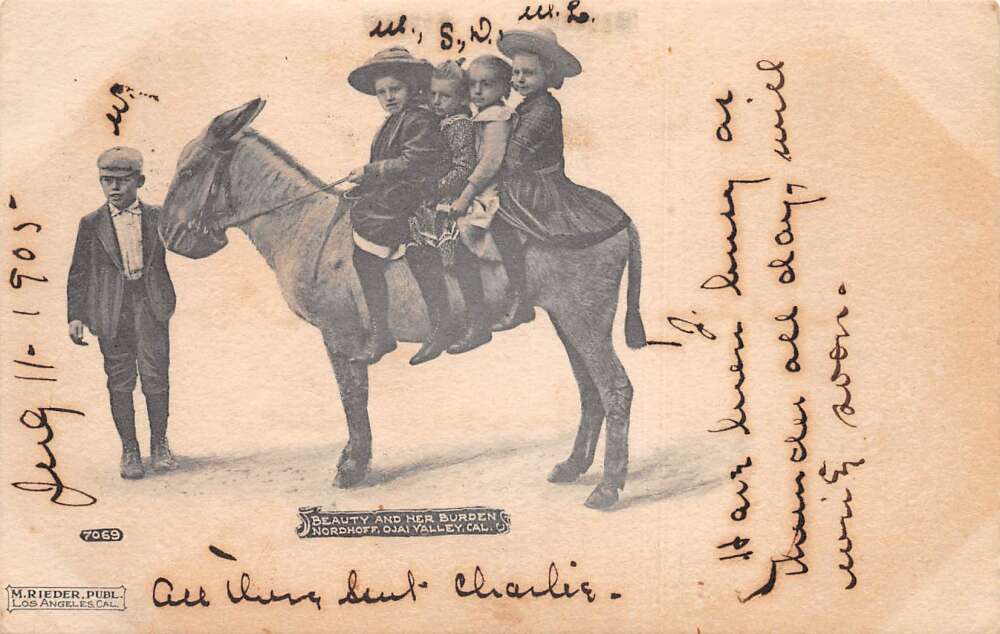 M., S, D., M. L.
W.
July 11 - 1905 -
I.
Have been busy as
thunder all day, will
write soon.
BEAUTY AND HER BURDEN
NORDHOFF, OJAI VALLEY, CAL.
7069
All there but Charlie.
M. RIEDER, PUBL.
LOS ANGELES, CAL.